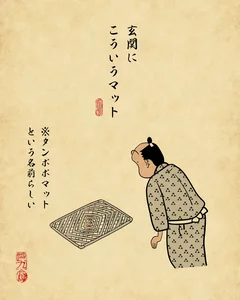 玄関に
こういうマット
※タンポポマット
という名前らしい